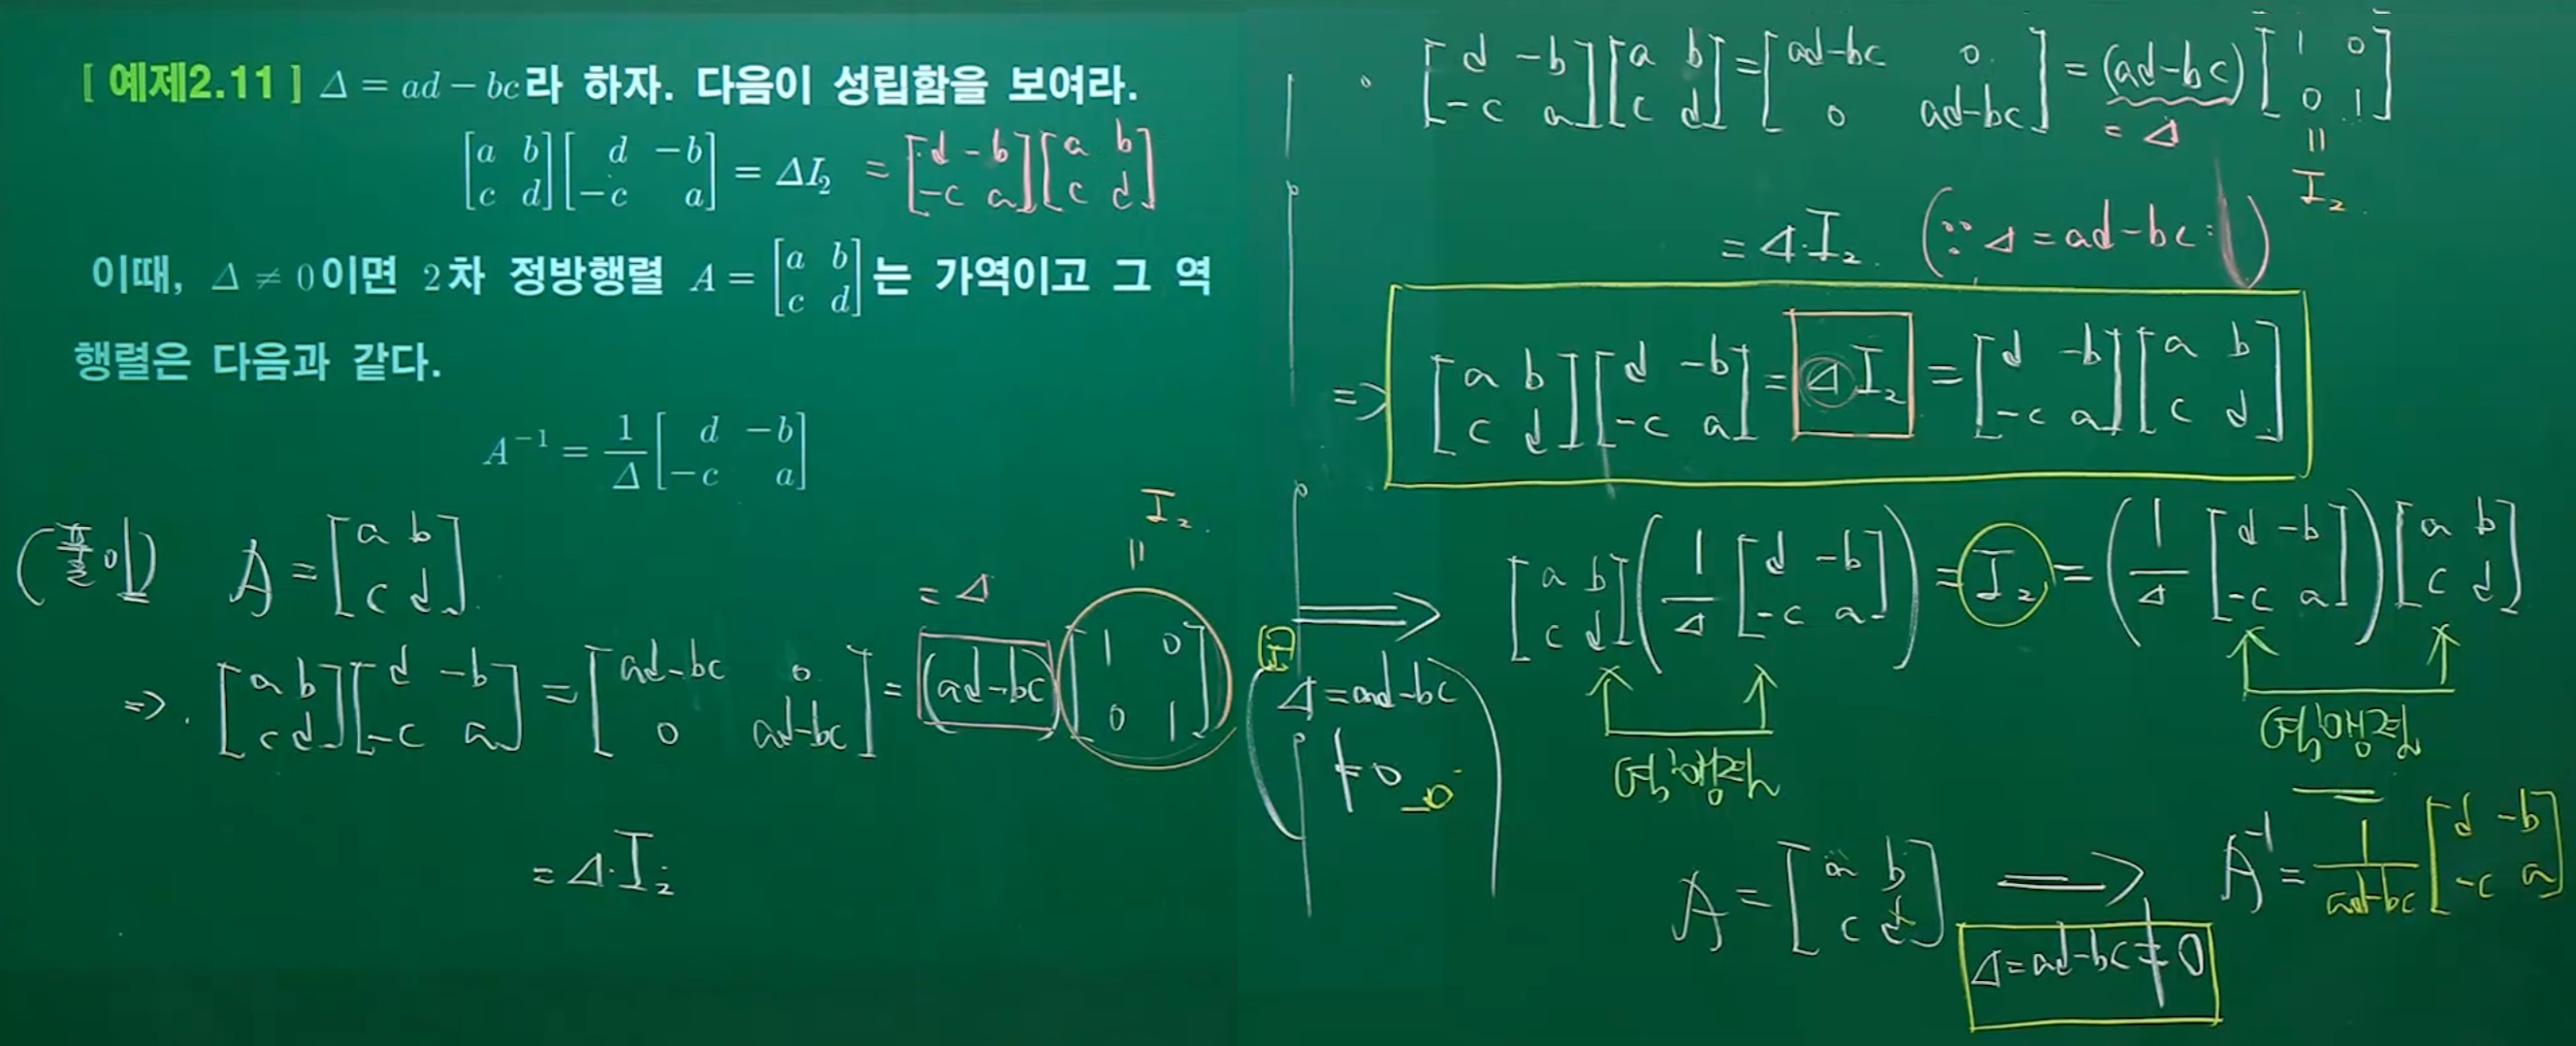 [ 예제2.11 ] Δ = ad − bc라 하자. 다음이 성립함을 보여라.
[a b; c d][d −b; −c a] = ΔI₂ = [d −b; −c a][a b; c d]
이때, Δ ≠ 0이면 2차 정방행렬 A = [a b; c d]는 가역이고 그 역
행렬은 다음과 같다.
A⁻¹ = 1/Δ [d −b; −c a]
(풀이) A = [a b; c d]
⇒ [a b; c d][d −b; −c a] = [ad−bc 0; 0 ad−bc] = (ad−bc)[1 0; 0 1]
= Δ
= I₂
= Δ·I₂
[d −b; −c a][a b; c d] = [ad−bc 0; 0 ad−bc] = (ad−bc)[1 0; 0 1]
= Δ
= I₂
= Δ·I₂ (∵ Δ = ad−bc)
⇒ [a b; c d][d −b; −c a] = ΔI₂ = [d −b; −c a][a b; c d]
⇒ [a b; c d](1/Δ [d −b; −c a]) = I₂ = (1/Δ [d −b; −c a])[a b; c d]
(Δ = ad−bc
≠ 0)
역행렬
역행렬
A = [a b; c d] ⇒ A⁻¹ = 1/ad−bc [d −b; −c a]
Δ = ad−bc ≠ 0